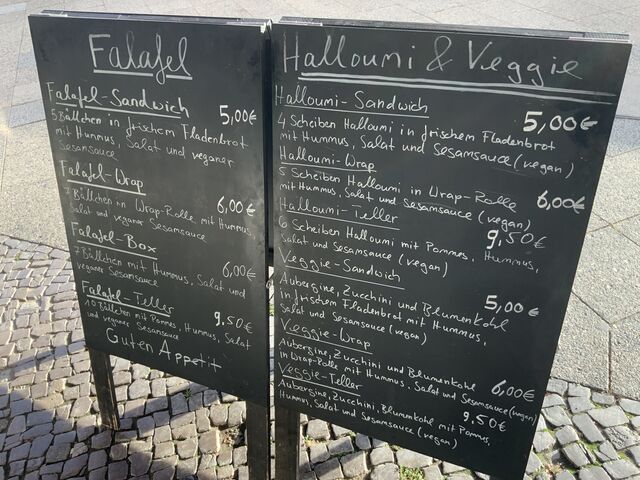 Falafel
Falafel-Sandwich 5,00€
5 Bällchen in frischem Fladenbrot
mit Hummus, Salat und veganer
Sesamsauce
Falafel-Wrap
7 Bällchen in Wrap-Rolle mit Hummus, 6,00€
Salat und veganer Sesamsauce
Falafel-Box
7 Bällchen mit Hummus, Salat und 6,00€
veganer Sesamsauce
Falafel-Teller 9,50€
10 Bällchen mit Pommes, Hummus, Salat
und veganer Sesamsauce
Guten Appetit
Halloumi & Veggie
Halloumi-Sandwich 5,00€
4 Scheiben Halloumi in frischem Fladenbrot
mit Hummus, Salat und Sesamsauce (vegan)
Halloumi-Wrap
5 Scheiben Halloumi in Wrap-Rolle 6,00€
mit Hummus, Salat und Sesamsauce (vegan)
Halloumi-Teller 9,50€
6 Scheiben Halloumi mit Pommes, Hummus,
Salat und Sesamsauce (vegan)
Veggie-Sandwich
Aubergine, Zucchini und Blumenkohl 5,00€
in frischem Fladenbrot mit Hummus,
Salat und Sesamsauce (vegan)
Veggie-Wrap
Aubergine, Zucchini und Blumenkohl 6,00€
in Wrap-Rolle mit Hummus, Salat und Sesamsauce (vegan)
Veggie-Teller 9,50€
Aubergine, Zucchini, Blumenkohl mit Pommes,
Hummus, Salat und Sesamsauce (vegan)